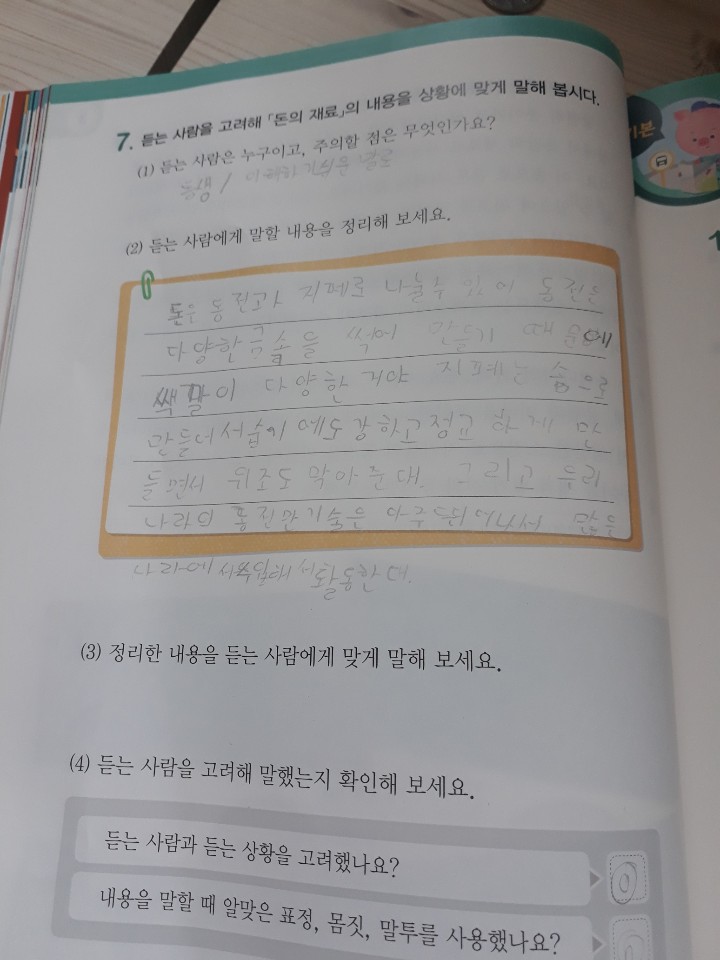 7. 듣는 사람을 고려해 「돈의 재료」의 내용을 상황에 맞게 말해 봅시다.
(1) 듣는 사람은 누구이고, 주의할 점은 무엇인가요?
동생 / 이해하기 쉬운 말로
(2) 듣는 사람에게 말할 내용을 정리해 보세요.
돈은 동전과 지폐로 나눌수 있어 동전은
다양한 금속을 썩어 만들기 때문에
색깔이 다양한 거야 지폐는 솜으로
만들어서 습기에도 강하고 정교하게 만
들면서 위조도 막아준대. 그리고 우리
나라의 동전만기술은 아주 뛰어나서 많은
나라에서 수입해서 활동한대.
(3) 정리한 내용을 듣는 사람에게 맞게 말해 보세요.
(4) 듣는 사람을 고려해 말했는지 확인해 보세요.
듣는 사람과 듣는 상황을 고려했나요?
내용을 말할 때 알맞은 표정, 몸짓, 말투를 사용했나요?
기본
1